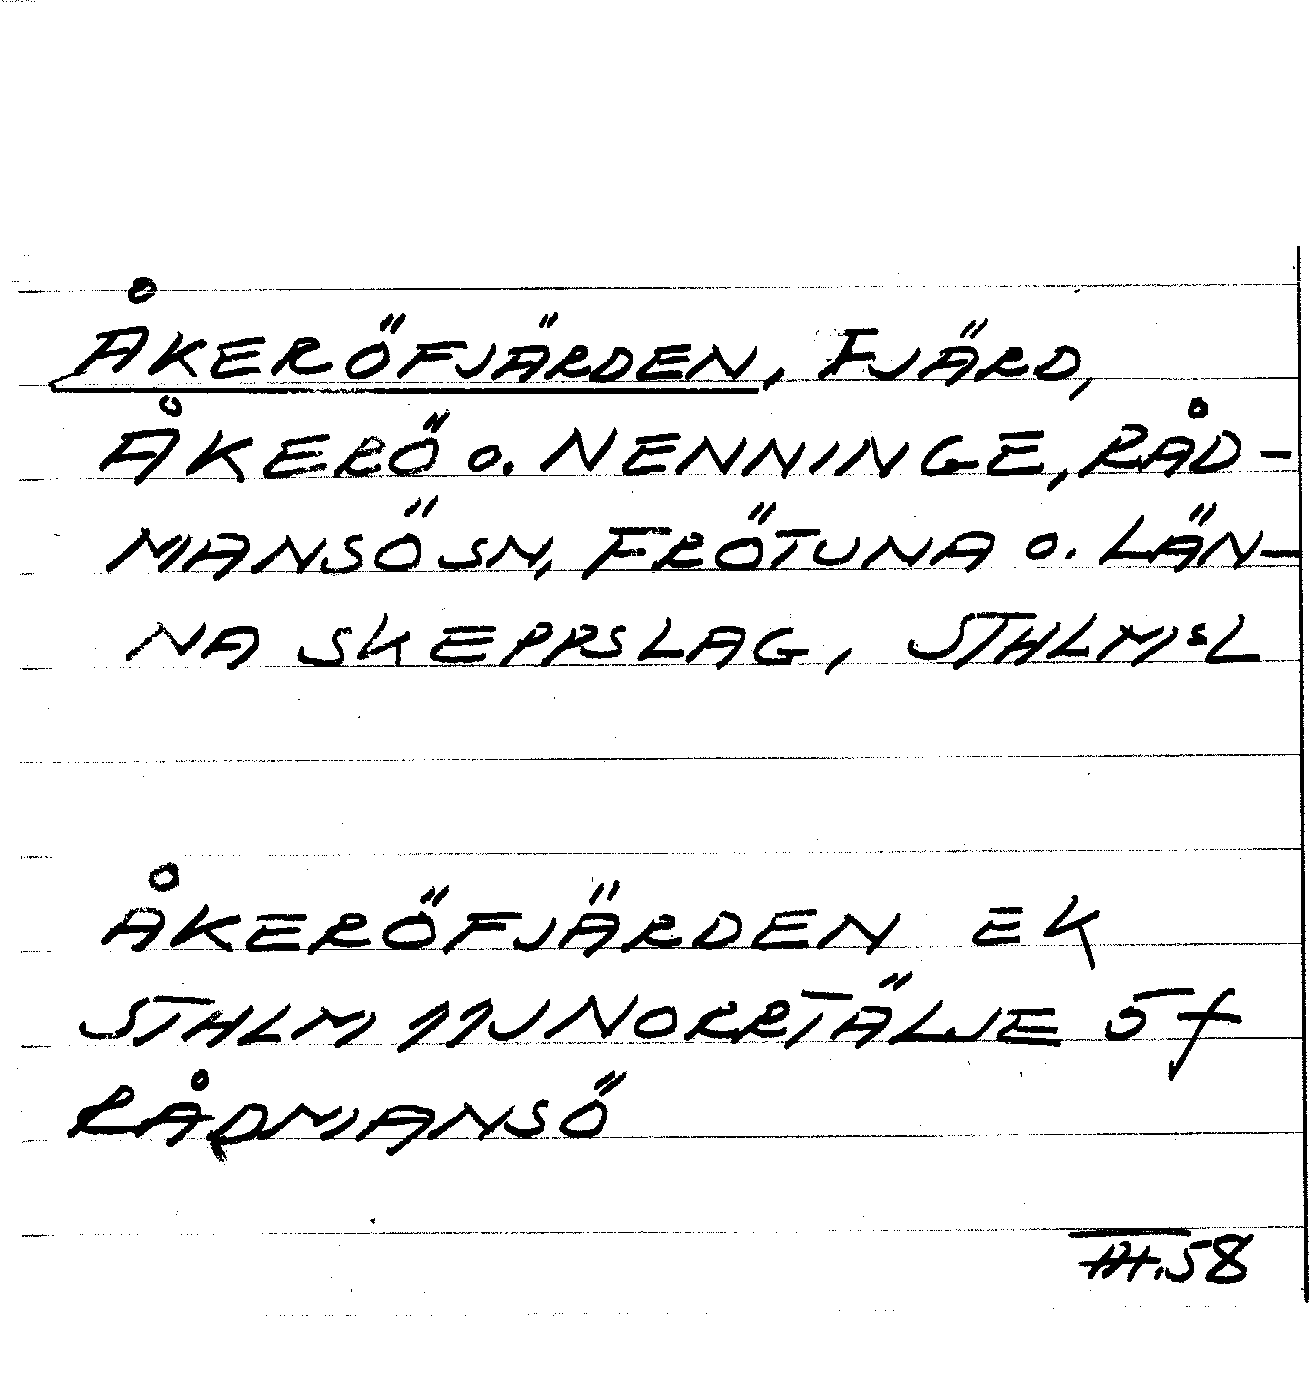 ÅKERÖFJÄRDEN, FJÄRD,
ÅKERÖ o. NENNINGE, RÅD-
MANSÖ SN, FRÖTUNA o. LÄN-
NA SKEPPSLAG, STHLMsL
ÅKERÖFJÄRDEN EK
STHLM 11J NORRTÄLJE 5f
RÅDMANSÖ
58